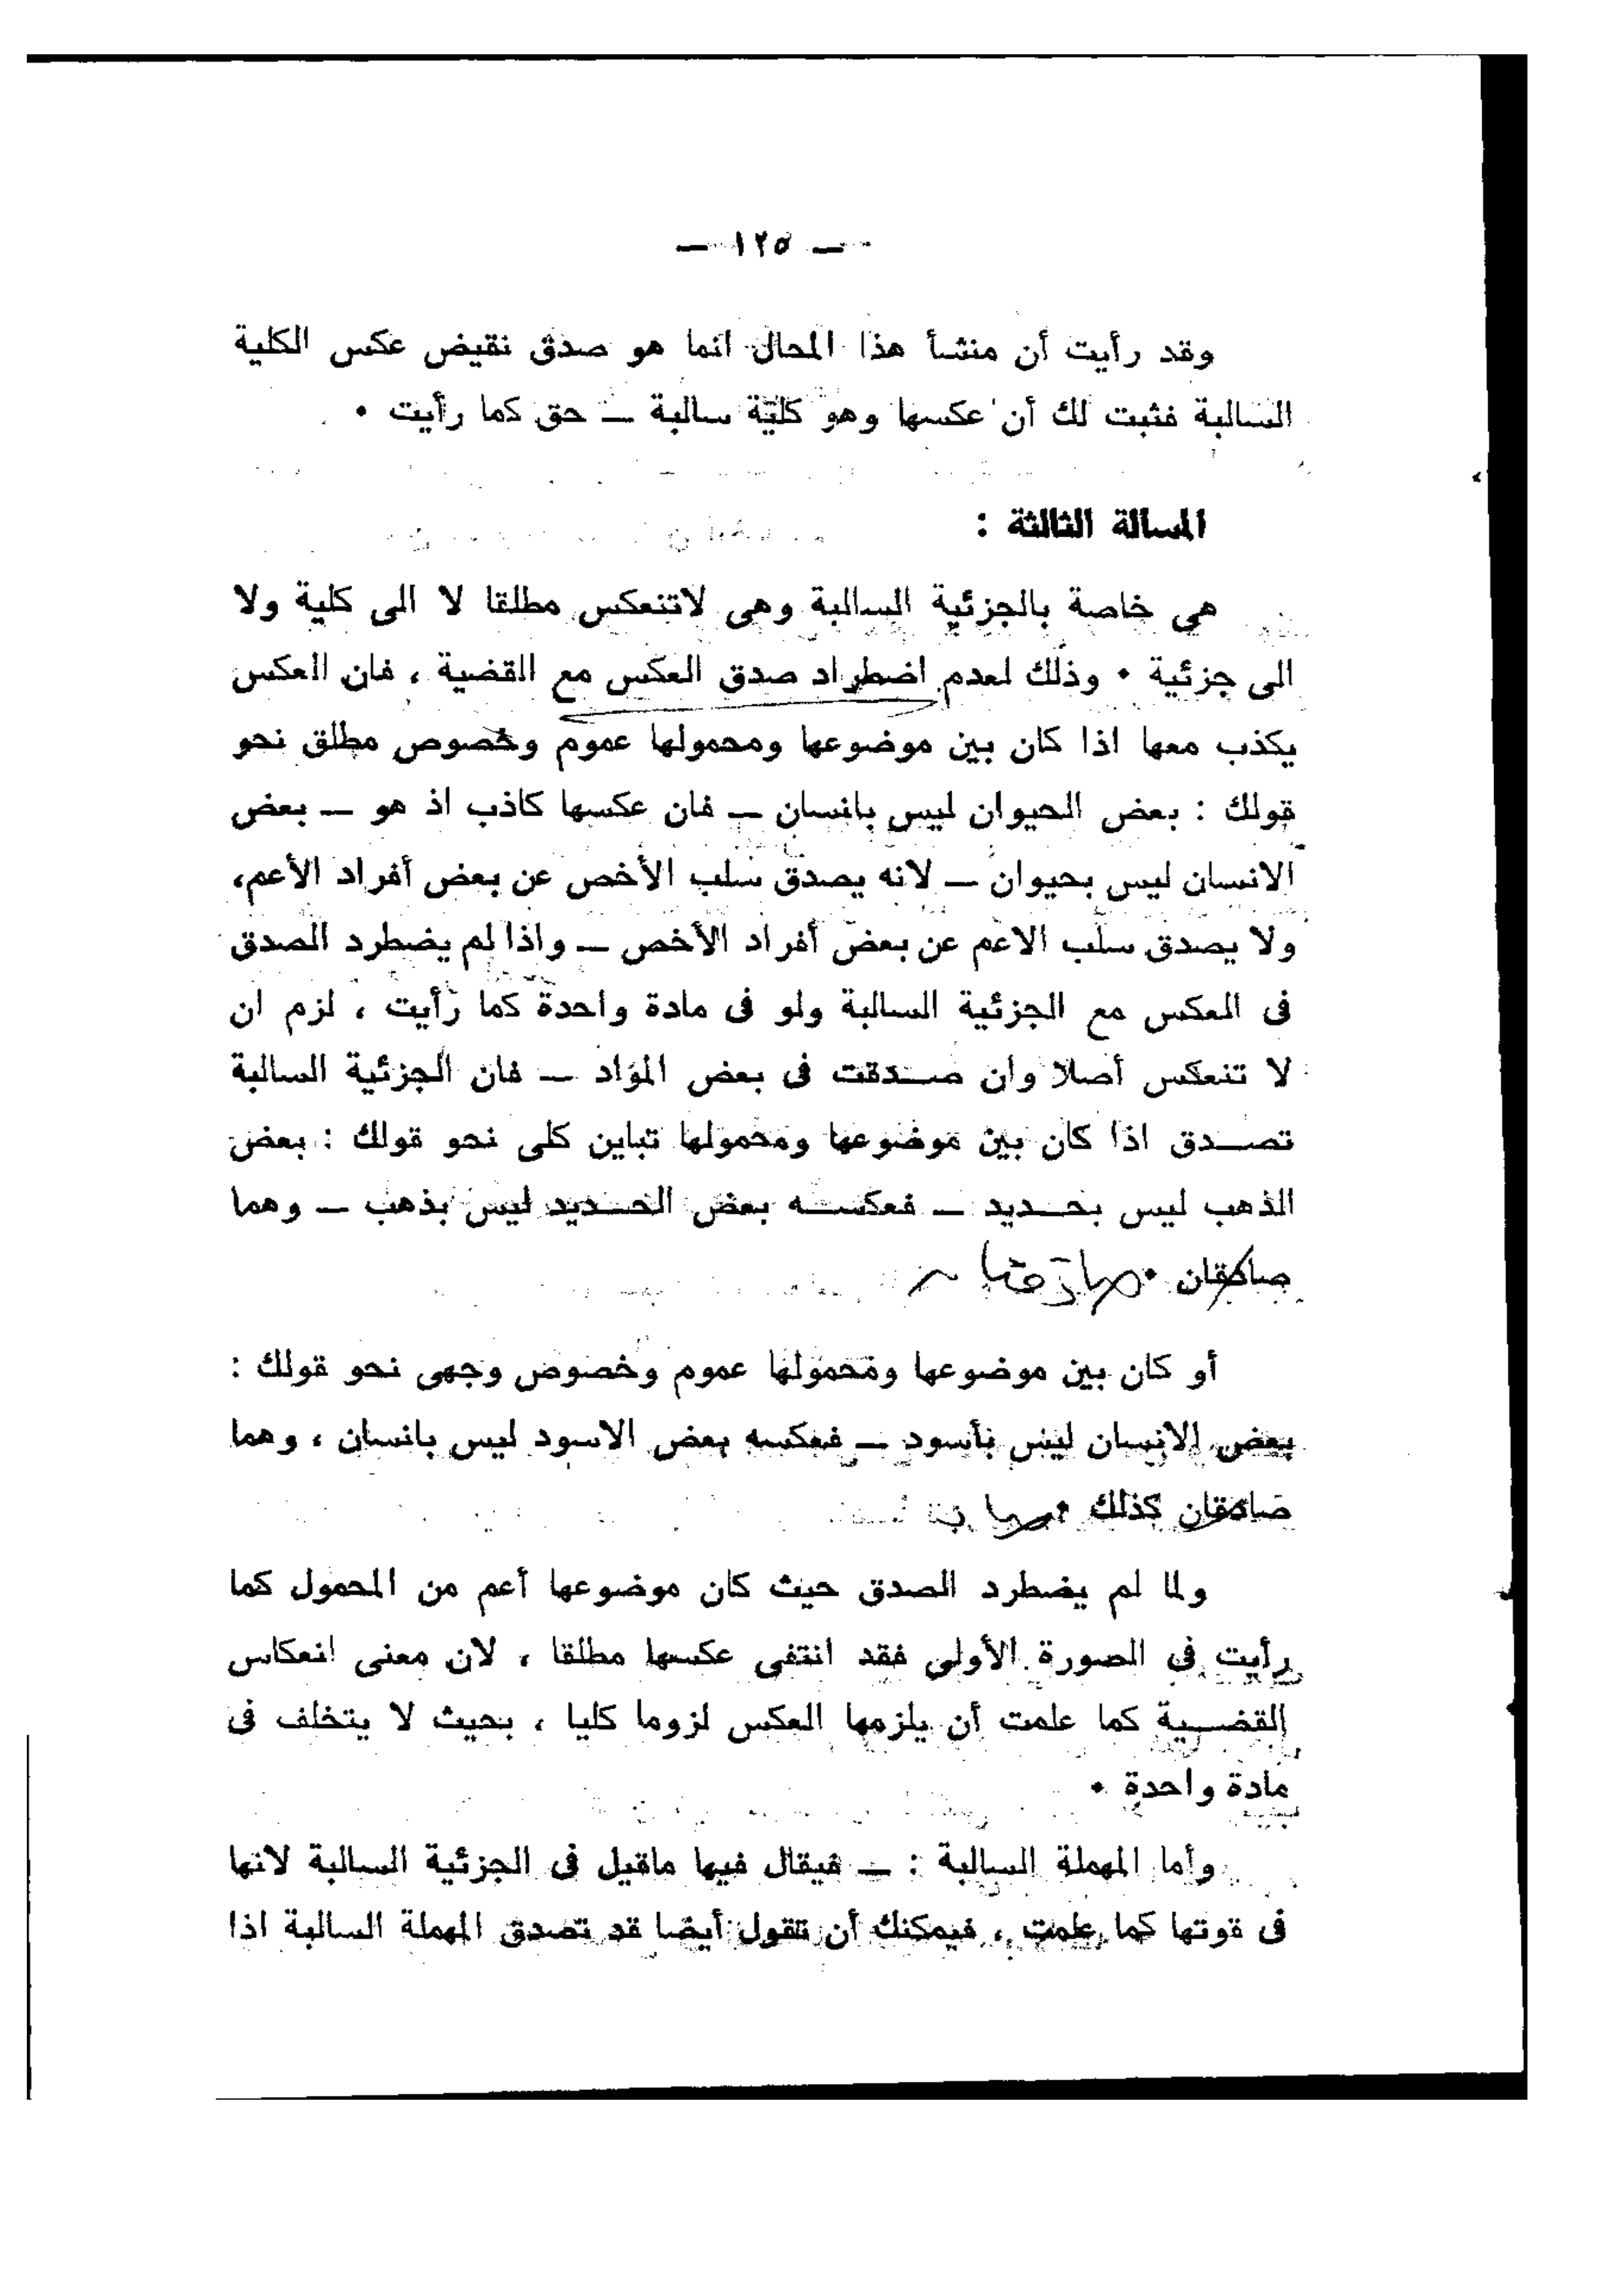 — ١٢٥ —
وقد رأيت أن منشأ هذا المحال انما هو صدق نقيض عكس الكلية
السالبة فثبت لك أن عكسها وهو كلية سالبة — حق كما رأيت •
المسالة الثالثة :
هى خاصة بالجزئية السالبة وهى لاتنعكس مطلقا لا الى كلية ولا
الى جزئية • وذلك لعدم اضطراد صدق العكس مع القضية ، فان العكس
يكذب معها اذا كان بين موضوعها ومحمولها عموم وخصوص مطلق نحو
قولك : بعض الحيوان ليس بانسان — فان عكسها كاذب اذ هو — بعض
الانسان ليس بحيوان — لانه يصدق سلب الأخص عن بعض أفراد الأعم،
ولا يصدق سلب الاعم عن بعض أفراد الأخص — واذا لم يضطرد الصدق
فى العكس مع الجزئية السالبة ولو فى مادة واحدة كما رأيت ، لزم ان
لا تنعكس أصلا وان صدقت فى بعض المواد — فان الجزئية السالبة
تصدق اذا كان بين موضوعها ومحمولها تباين كلى نحو قولك : بعض
الذهب ليس بحديد — فعكسه بعض الحديد ليس بذهب — وهما
صادقان •
أو كان بين موضوعها ومحمولها عموم وخصوص وجهى نحو قولك :
بعض الانسان ليس بأسود — فعكسه بعض الاسود ليس بانسان ، وهما
صادقان كذلك •
ولما لم يضطرد الصدق حيث كان موضوعها أعم من المحمول كما
رأيت فى الصورة الأولى فقد انتفى عكسها مطلقا ، لان معنى انعكاس
القضية كما علمت أن يلزمها العكس لزوما كليا ، بحيث لا يتخلف فى
مادة واحدة •
وأما المهملة السالبة : — فيقال فيها ماقيل فى الجزئية السالبة لانها
فى قوتها كما علمت ، فيمكنك أن تقول أيضا قد تصدق المهملة السالبة اذا